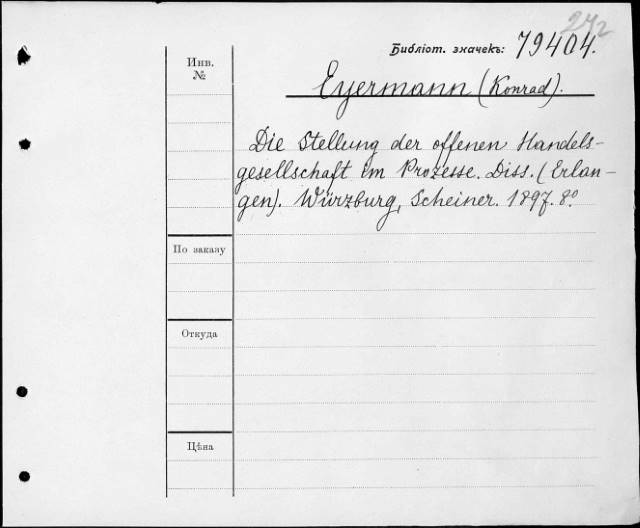 272
Библіот. значекъ: 79404.
Инв.
№
Eyermann (Konrad).
Die Stellung der offenen Handels-
gesellschaft im Prozesse. Diss. (Erlan-
gen). Würzburg, Scheiner. 1897. 8°
По заказу
Откуда
Цѣна